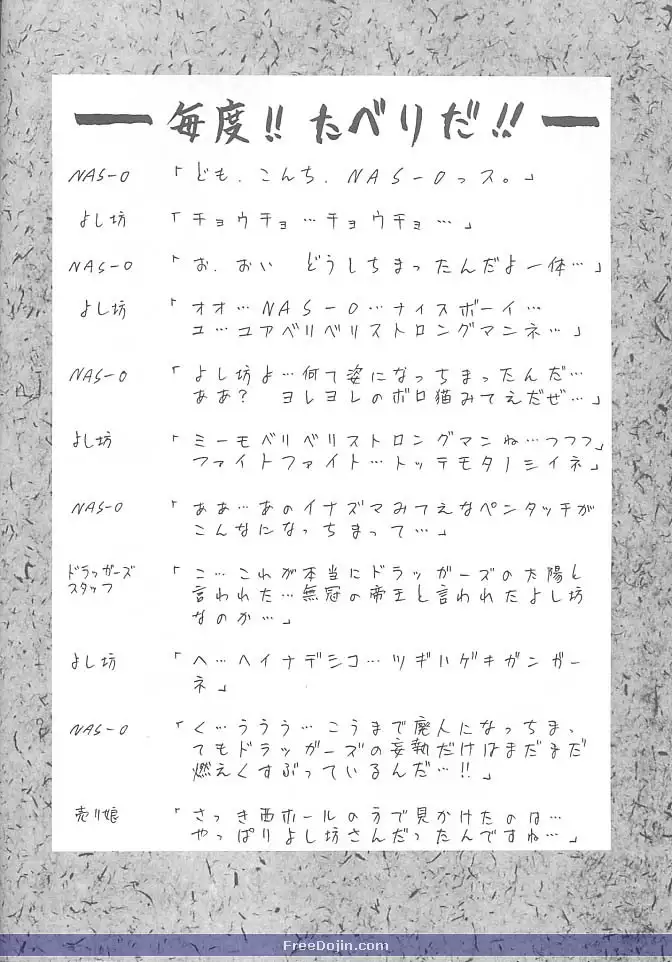 毎度!! たべりだ!!
NAS-O 「ども、こんち、NAS-Oっス。」
よし坊 「チョウチョ…チョウチョ…」
NAS-O 「お、おい どうしちまったんだよ一体…」
よし坊 「オオ…NAS-O…ナイスボーイ…
コ…ユアベリベリストロングマンネ…」
NAS-O 「よし坊よ…何て姿になっちまったんだ…
ああ? ヨレヨレのボロ猫みてえだぜ…」
よし坊 「ミーモベリベリストロングマンね…フフフ
ファイトファイト…トッテモタノシイネ」
NAS-O 「ああ…あのイナズマみてえなペンタッチが
こんなになっちまって…」
ドラッガーズ
スタッフ 「こ…これが本当にドラッガーズの太陽と
言われた…無冠の帝王と言われたよし坊
なのか…」
よし坊 「ヘ…ヘイナデシコ…ツギハゲキガンガー
ネ」
NAS-O 「く…ううう…こうまで廃人になっちま、
てもドラッガーズの妄執だけはまだまだ
燃えくすぶっているんだ…!!」
売り娘 「さっき西ホールの方で見かけたのは…
やっぱりよし坊さんだったんですね…」
FreeDojin.com